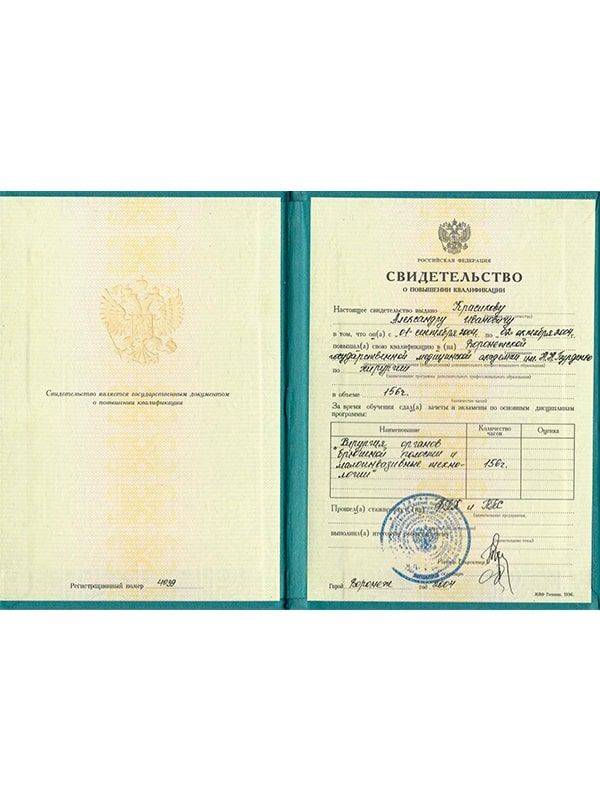 Свидетельство является государственным документом
о повышении квалификации
Регистрационный номер 4039
РОССИЙСКАЯ ФЕДЕРАЦИЯ
СВИДЕТЕЛЬСТВО
О ПОВЫШЕНИИ КВАЛИФИКАЦИИ
Настоящее свидетельство выдано Красикову
Александру Ивановичу
в том, что он(а) с 01 сентября 2004 по 02 октября 2004
повышал(а) свою квалификацию в (на) Воронежской
государственной медицинской академии им. Н.Н. Бурденко
(наименование образовательного учреждения (подразделения) дополнительного профессионального образования)
по хирургии
(наименование программы дополнительного профессионального образования)
в объеме 156ч.
(количество часов)
За время обучения сдал(а) зачеты и экзамены по основным дисциплинам
программы:
Наименование Количество часов Оценка
"Хирургия органов
брюшной полости и 156ч.
малоинвазивные техно-
логии"
Прошел(а) стажировку в (на)
(наименование предприятия,
выполнил(а) итоговую работу на тему
(наименование темы)
Ректор (директор)
Секретарь
Город Воронеж год 2004